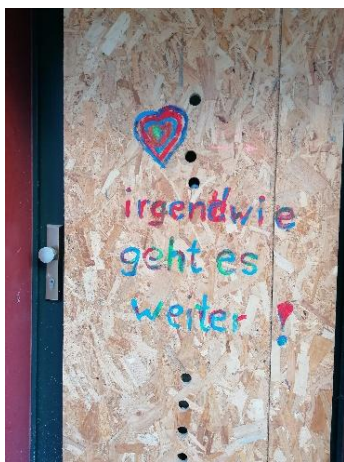 irgendwie
geht es
weiter!